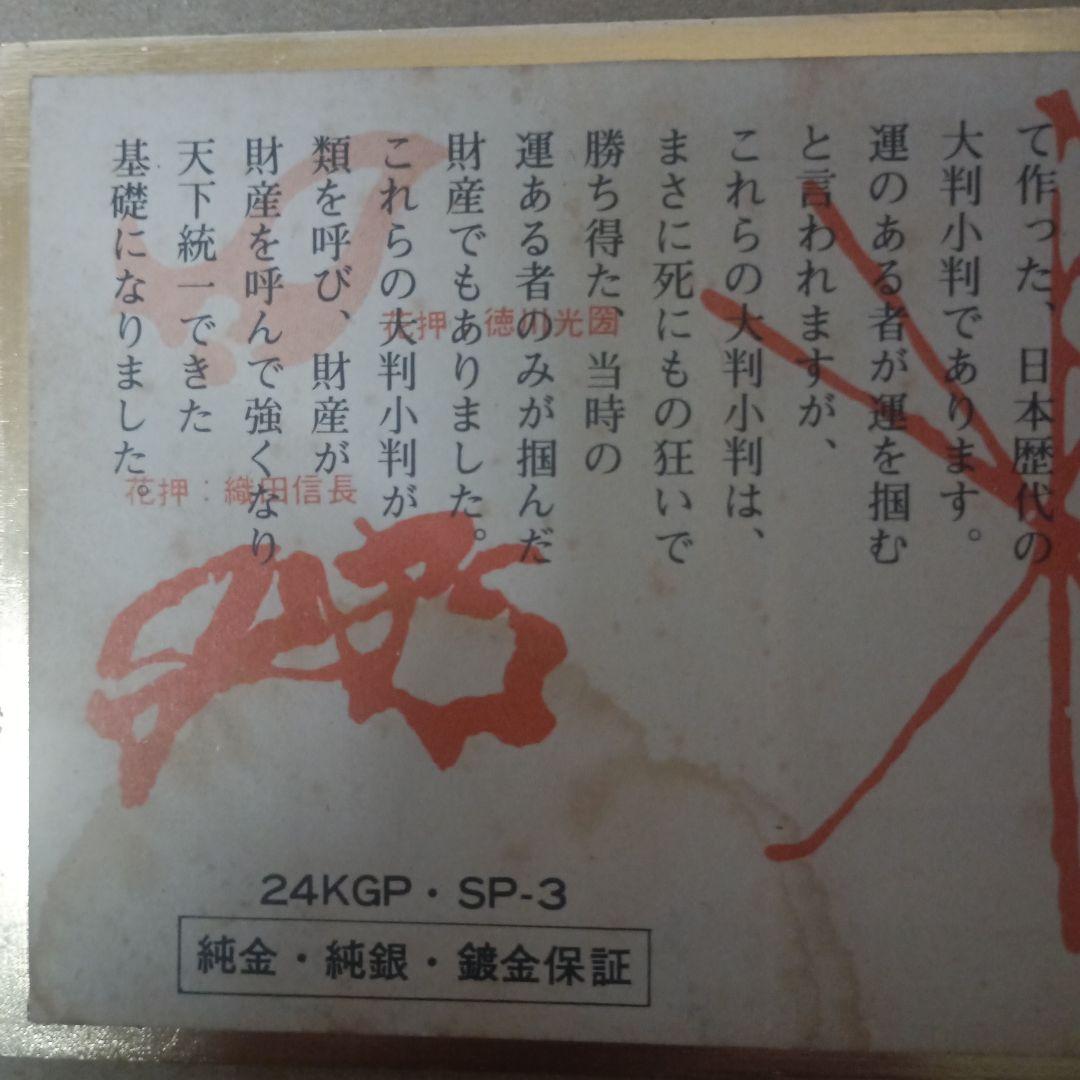 て作った、日本歴代の
大判小判であります。
運のある者が運を掴む
と言われますが、
これらの大判小判は、
まさに死にもの狂いで
勝ち得た、当時の
運ある者のみが掴んだ
財産でもありました。
これらの大判小判が
類を呼び、財産が
財産を呼んで強くなり
天下統一できた
基礎になりました。
花押：徳川光圀
花押：織田信長
24KGP・SP-3
純金・純銀・鍍金保証